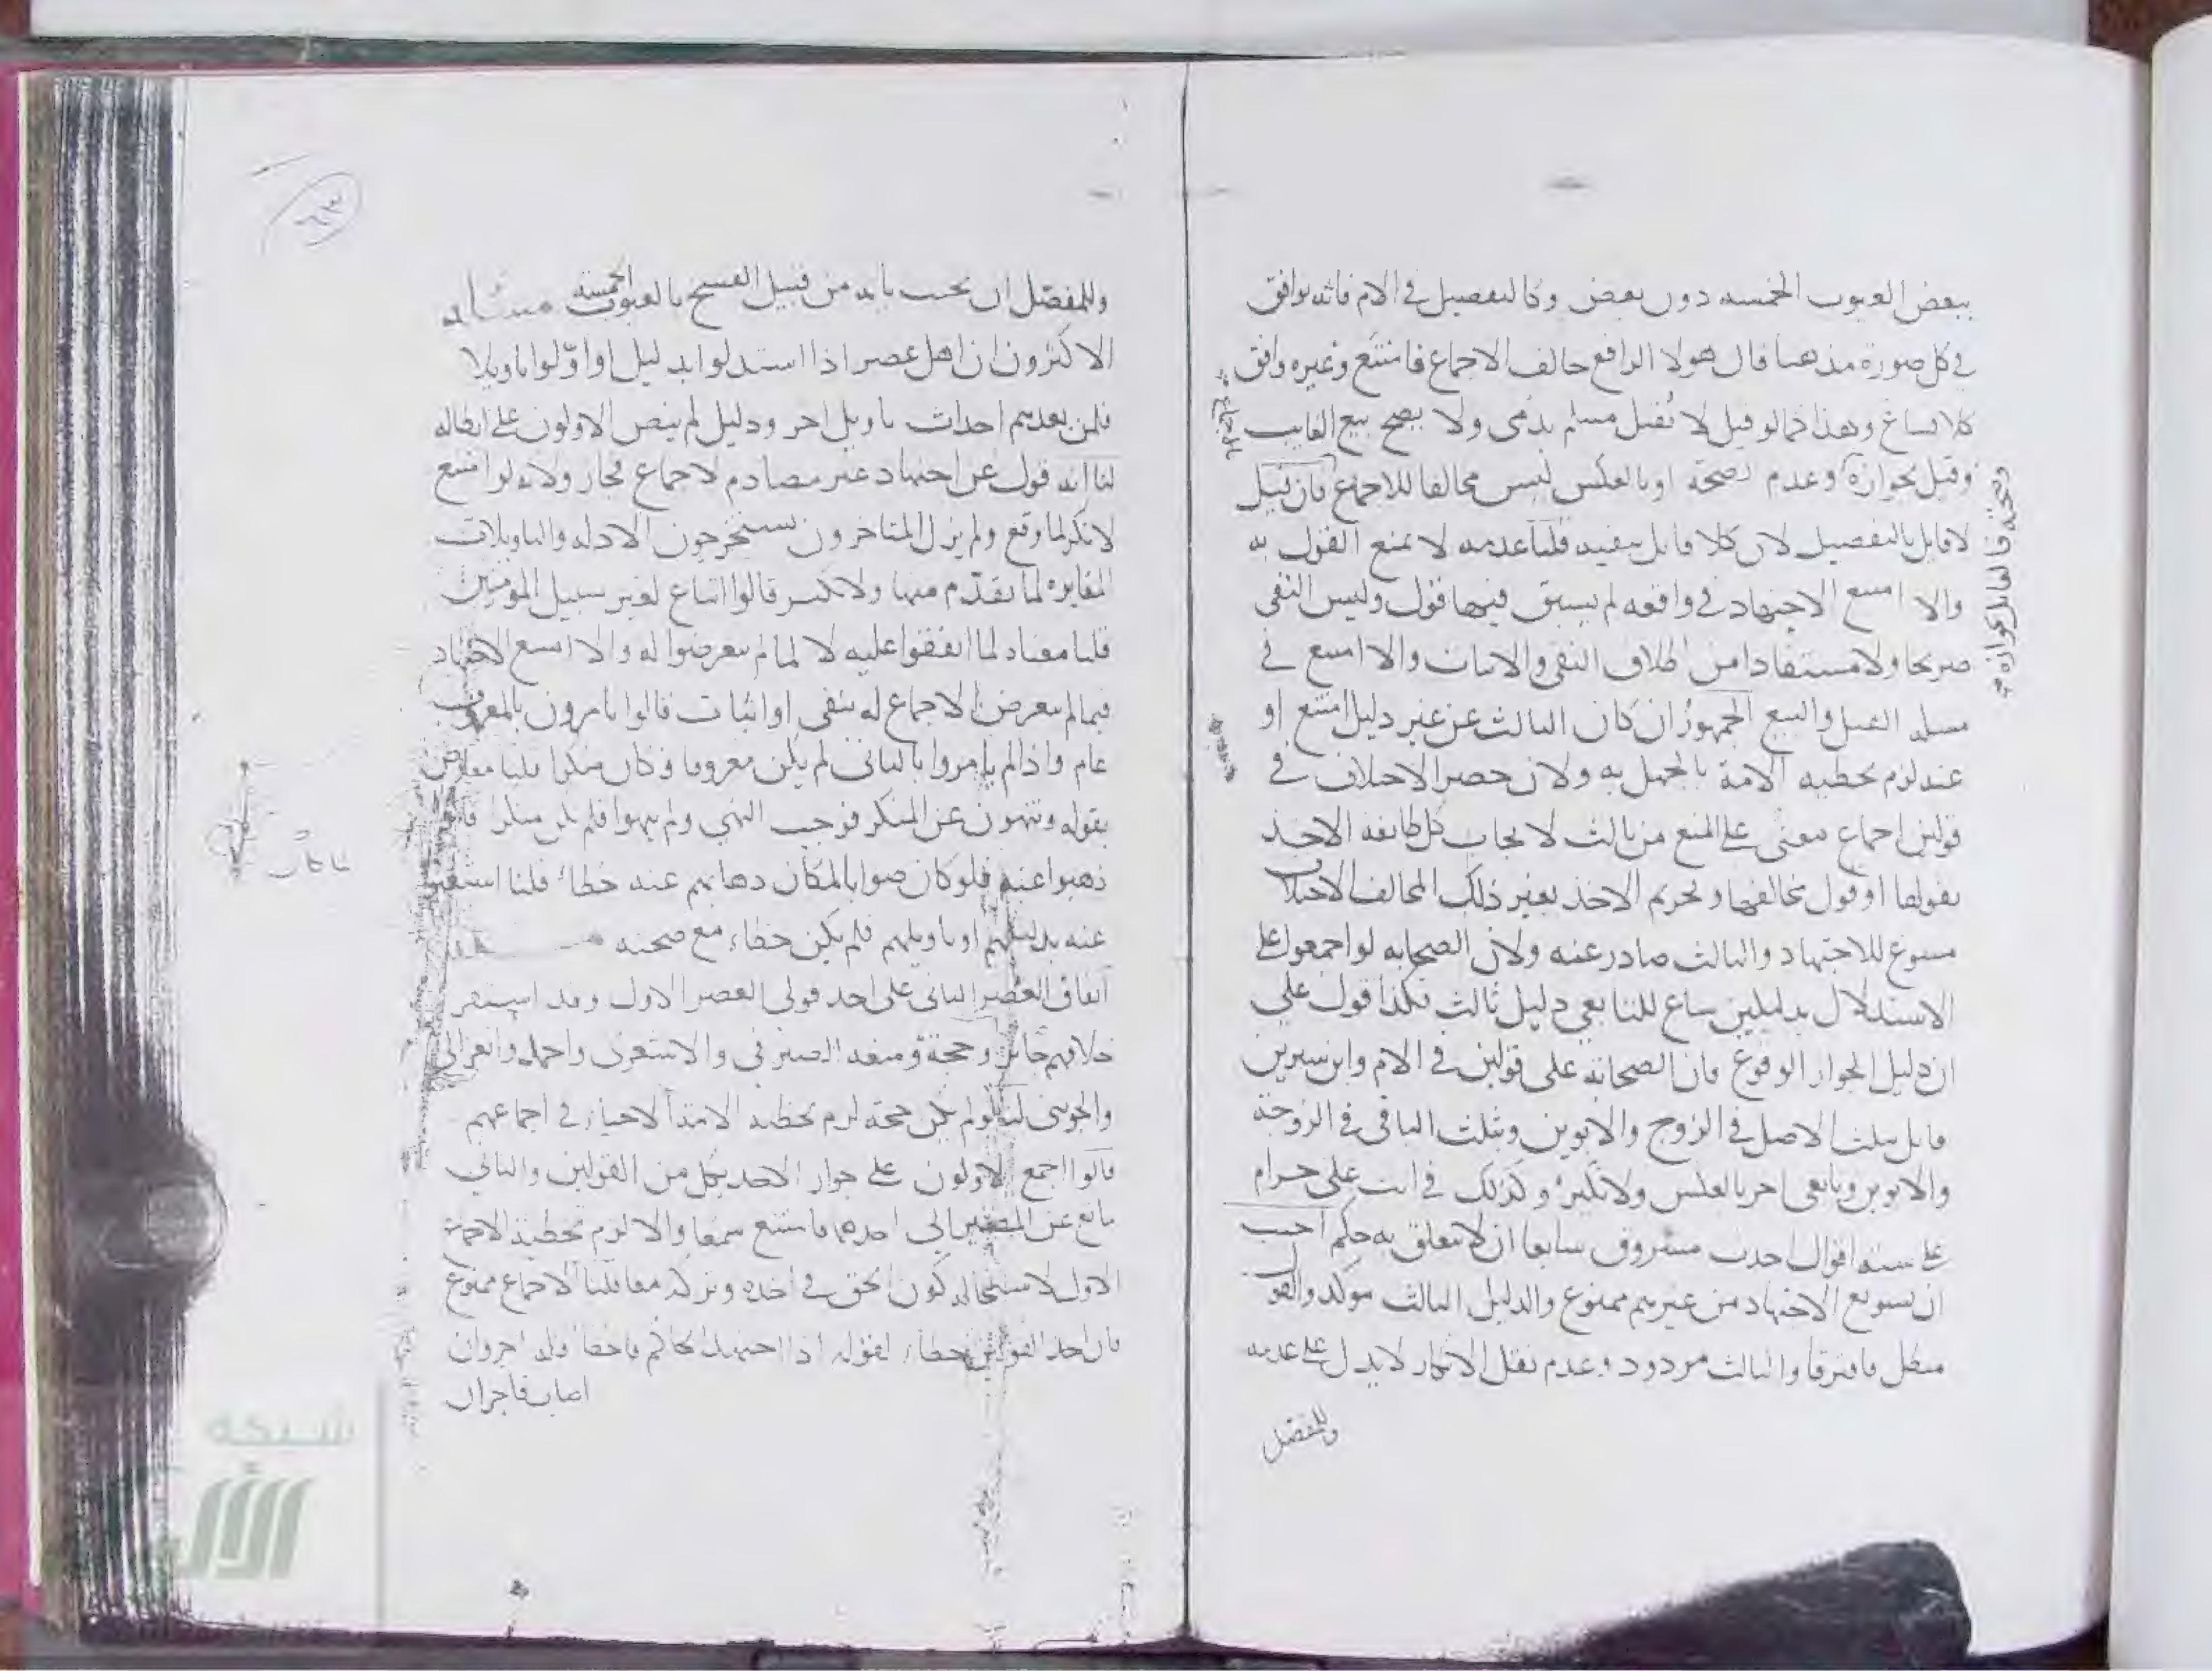 ببعض العيوب الخمسه دون بعض وكالتفصيل في الام فانه يوافق
في كل صورة مذهبا قال هولا الرافع خالف الاجماع فامتنع وغيره وافق
كلا فساغ وهذا كما لو قيل لا يُقتل مسلم بذمي ولا يصح بيع الغايب
وقيل بجوازه وعدم صحته او بالعكس ليس مخالفا للاجماع فان قيل
وصحته فالقايل بجوازه
بالاجماع
لا قايل بالتفصيل لان كلا قايل بنفيه قلنا عدمه لا يمنع القول به
والا امتنع الاجتهاد في واقعه لم يسبق فيها قول وليس النفي
صريحا ولا مستفادا من اطلاق النفي والاثبات والا امتنع في
مسله القتل والبيع الجمهورُ ان كان الثالث عن غير دليل امتنع او
عنه لزم تخطيه الامة بالجهل به ولان حصر الاختلاف في
قولين اجماع معنى على المنع من ثالث لايجاب كل طايفه الاخذ
بقولها او قول مخالفها وتحريم الاخذ بغير ذلك المخالف الاختلاف
مسوغ للاجتهاد والثالث صادر عنه ولان الصحابه لو اجمعوا على
الاستدلال بدليلين ساغ للتابعي دليل ثالث فكذا قول على
ان دليل الجواز الوقوع فان الصحابه على قولين في الام وابن سيرين
قايل بثلث الاصل في الزوج والابوين وبثلث الباقي في الزوجة
والابوين وتابعي اخر بالعكس ولا نكيرُ وكذلك في انت علي حرام
على سته اقوال احدث مسروق سابعا ان لا يتعلق به حكم اجيب
ان تسويغ الاجتهاد من غيرهم ممنوع والدليل الثالث موكد والقول
مبطل فافترقا والثالث مردود وعدم نقل الانكار لا يدل على عدمه
وللمفصل
وللمفصّل ان يجيب بانه من قبيل الفسخ بالعيوب الخمسة مسئله
الاكثرون ان اهل عصر اذا استدلوا بدليل او اوّلوا تاويلا
فلمن بعدهم احداث تاويل اخر ودليل لم ينص الاولون على ابطاله
لنا انه قول عن اجتهاد غير مصادم لاجماع فجاز ولانه لو امتنع
لانكر لما وقع ولم يزل المتاخرون يستخرجون الادله والتاويلات
المغايره لما تقدّم منها ولا نكير قالوا اتباع لغير سبيل المومنين
قلنا معناه لما اتفقوا عليه لا لما لم يتعرضوا له والا امتنع الاجتهاد
فيما لم يتعرض الاجماع له بنفي او اثبات قالوا تامرون بالمعروف
عام واذا لم يامروا بالثاني لم يكن معروفا وكان منكرا قلنا معارض
بقوله وتنهون عن المنكر فوجب النهي ولم ينهوا فلم يكن منكرا قالوا
ذهبوا عنه فلو كان صوابا لكان ذهابهم عنه خطاءً قلنا استغنوا
عنه بدليلهم او تاويلهم فلم يكن خطاء مع صحته مسئله
اتفاق العصر الثاني على احد قولي العصر الاول وقد استقر
خلافهم جائز وحجة ومنعه الصيرفي والاشعري واحمد والغزالي
والجويني لنا لو لم يكن حجة لزم تخطيه الامة الاحياء في اجماعهم
قالوا اجمع الاولون على جواز الاخذ بكل من القولين والثاني
مانع عن المصير الى احدهما فامتنع سمعا والا لزم تخطية الاجماع
الاول لاستحاله كون الحق في اخذه وتركه معا قلنا الاجماع ممنوع
فان احد القولين خطاء لقوله اذا اجتهد الحاكم فاخطا فله اجر وان
اصاب فاجران
شبكة